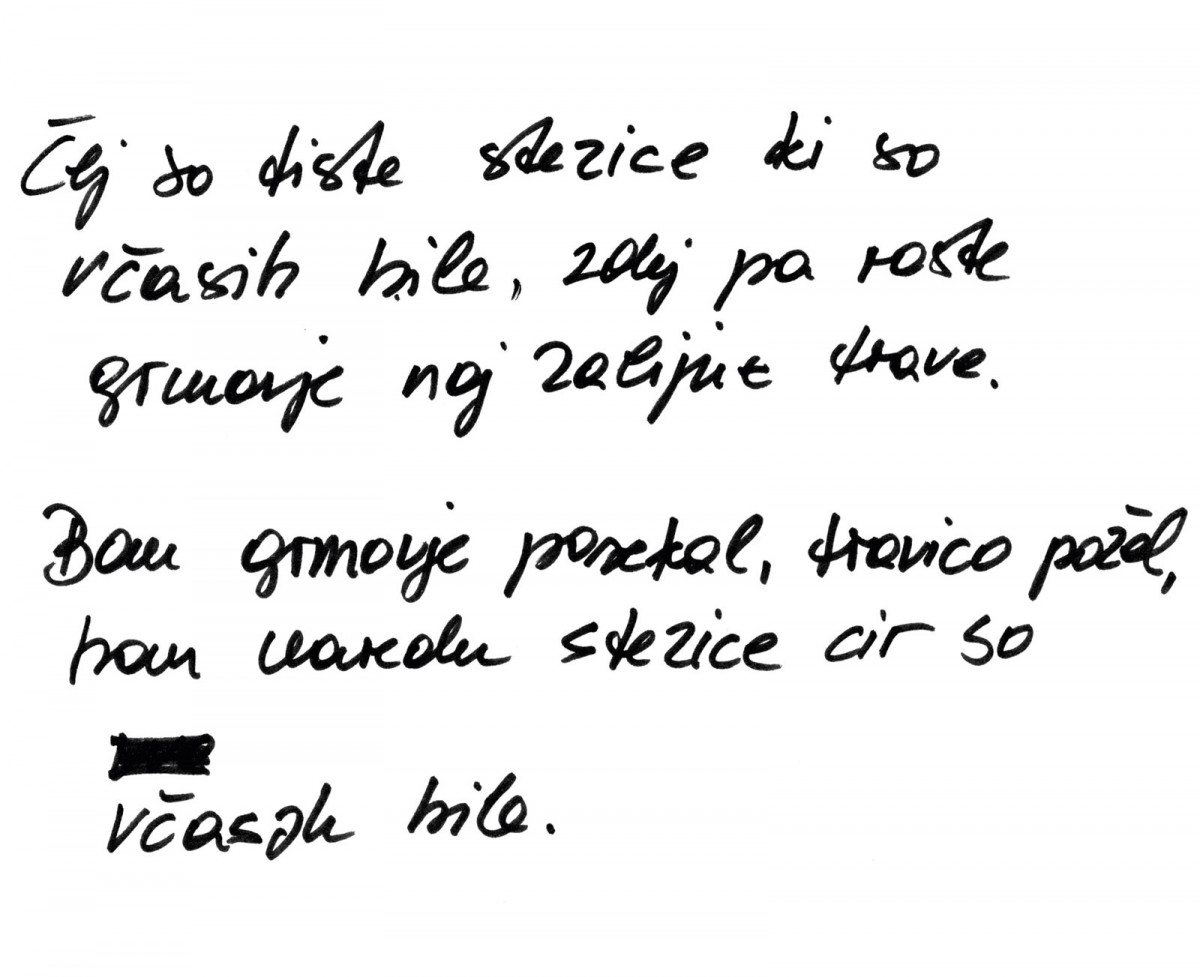 Čej so tiste stezice ki so
včasih bile, zdej pa raste
grmovje noj zelijnε trave.
Bom grmovje posekal, travico požel,
bom naredu stezice cir so
včasih bile.